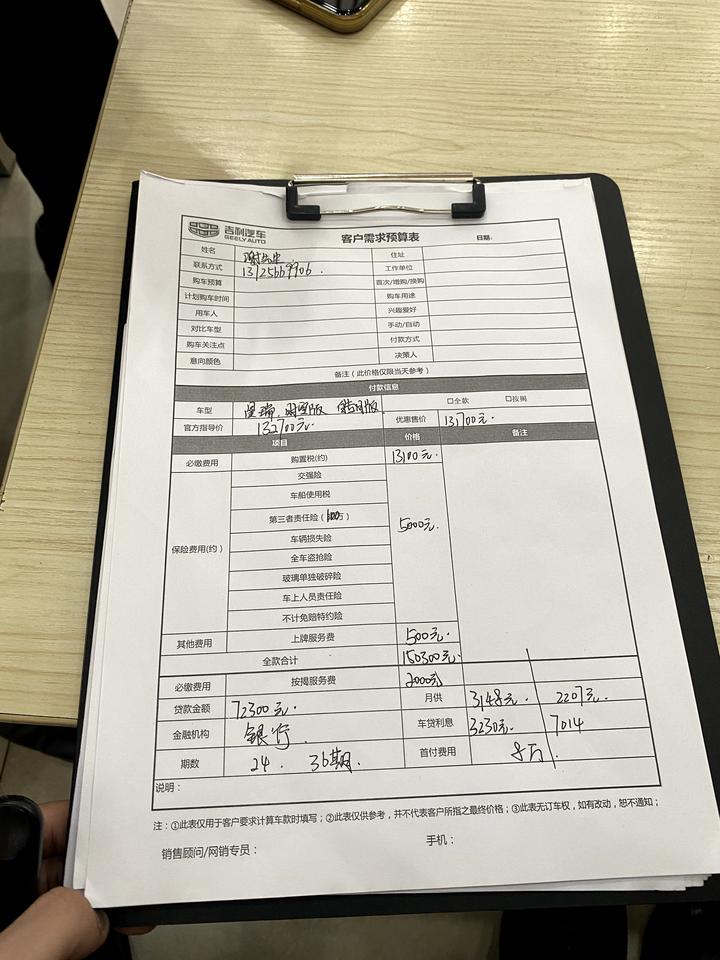 吉利汽车
GEELY AUTO
客户需求预算表 日期：
姓名 谢先生 住址
联系方式 13125669906. 工作单位
购车预算 首次/增购/换购
计划购车时间 购车用途
用车人 兴趣爱好
对比车型 手动/自动
购车关注点 付款方式
意向颜色 决策人
备注（此价格仅限当天参考）
付款信息
车型 星瑞. 版 版 口全款 口按揭
官方指导价 132700元. 优惠售价 131700元.
项目 价格 备注
必缴费用 购置税(约) 13100元.
保险费用(约) 交强险
车船使用税
第三者责任险（ 万） 5000元.
车辆损失险
全车盗抢险
玻璃单独破碎险
车上人员责任险
不计免赔特约险
其他费用 上牌服务费 500元.
全款合计 150300元.
必缴费用 按揭服务费 2000元
贷款金额 72300元. 月供 3148元. 2207元.
金融机构 银行. 车贷利息 3230元. 7014
期数 24. 36期. 首付费用 8万.
说明：
注：①此表仅用于客户要求计算车款时填写；②此表仅供参考，并不代表客户所指之最终价格；③此表无订车权，如有改动，恕不通知；
销售顾问/网销专员： 手机：